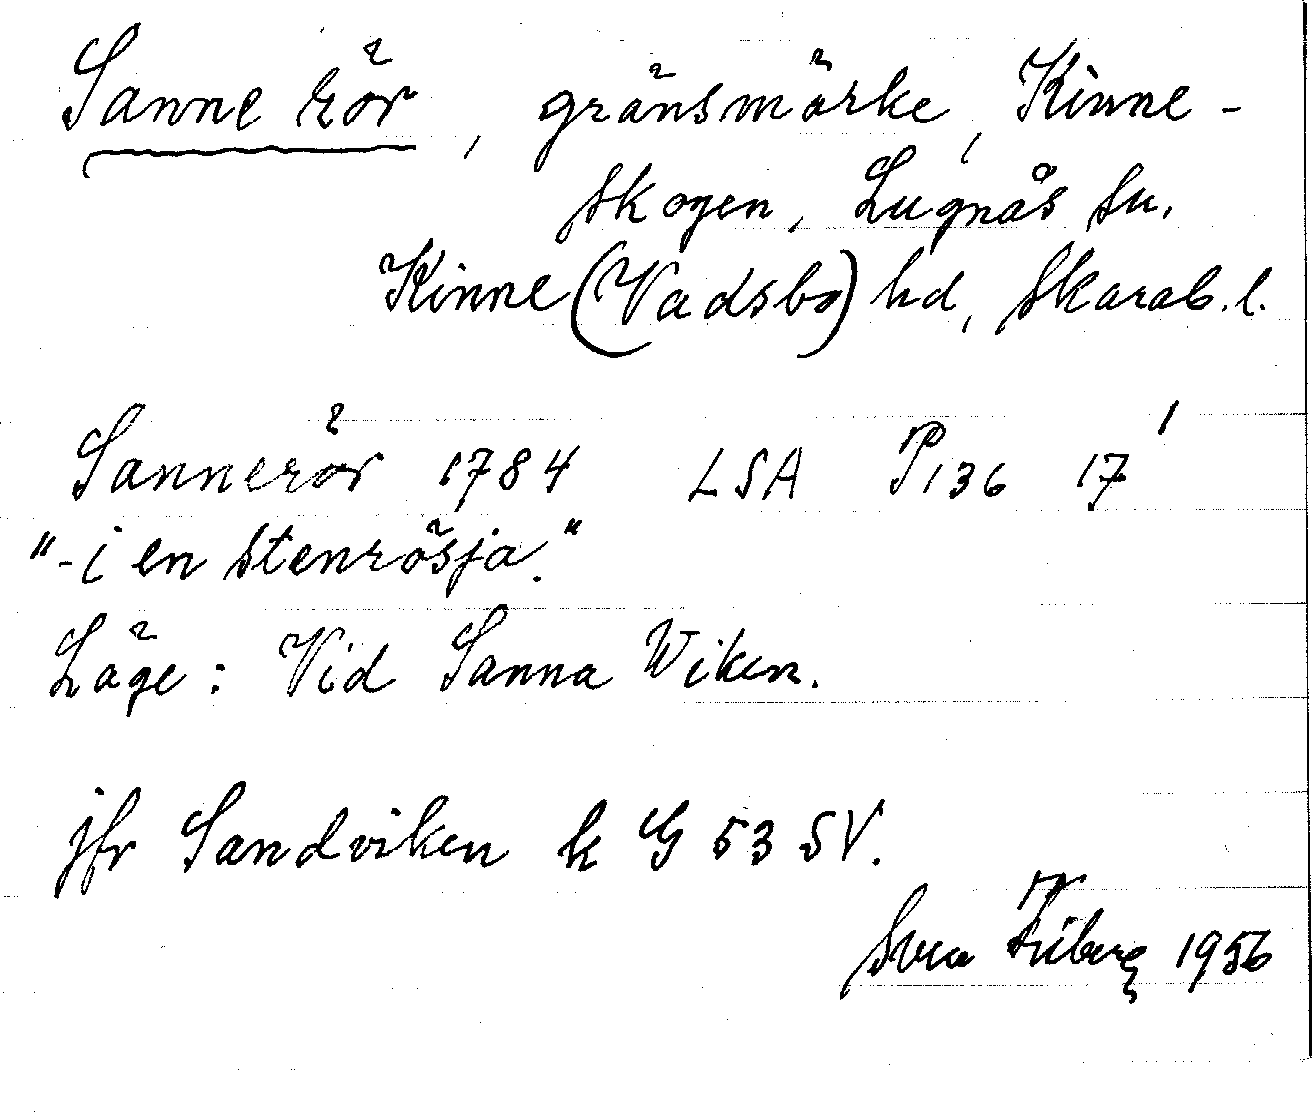 Sanne rör, gränsmärke, Kinne-
skogen, Lugnås sn.
Kinne (Vadsbo) hd, Skarab. l.
Sannerör 1784 LSA P136 17¹
"-i en stenrösja."
Läge: Vid Sanna Wiken.
jfr Sandviken k G 53 SV.
Svea Friberg 1956